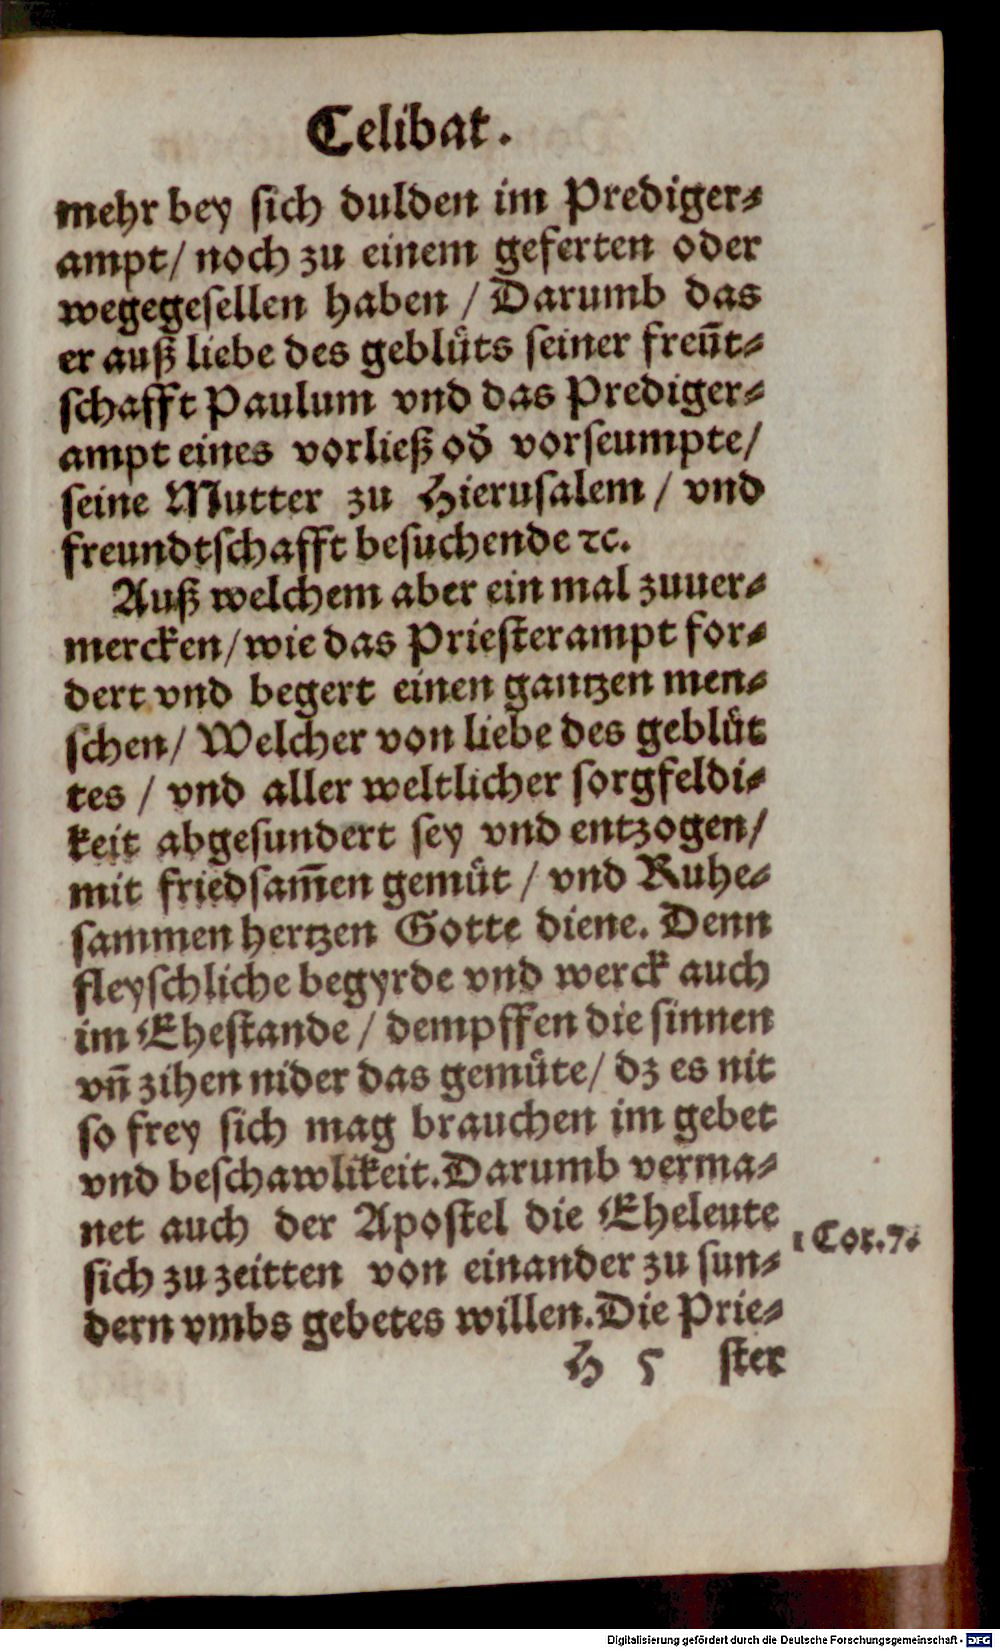 Celibat.
mehr bey sich dulden im Prediger⸗
ampt/ noch zu einem geferten oder
wegegesellen haben / Darumb das
er auß liebe des geblüts seiner freūt⸗
schafft Paulum vnd das Prediger⸗
ampt eines vorließ od̄ vorseumpte/
seine Mutter zu Hierusalem / vnd
freundtschafft besuchende ꝛc.
Auß welchem aber ein mal zuuer⸗
mercken/ wie das Priesterampt for⸗
dert vnd begert einen gantzen men⸗
schen/ Welcher von liebe des geblüt
tes / vnd aller weltlicher sorgfeldi⸗
keit abgesundert sey vnd entzogen/
mit friedsam̄en gemüt / vnd Ruhe⸗
sammen hertzen Gotte diene. Denn
fleyschliche begyrde vnd werck auch
im Ehestande / dempffen die sinnen
vn̄ zihen nider das gemüte/ dz es nit
so frey sich mag brauchen im gebet
vnd beschawlikeit. Darumb verma⸗
net auch der Apostel die Eheleute
1 Cor. 7.
sich zu zeitten von einander zu sun⸗
dern vmbs gebetes willen. Die Prie⸗
H 5 ster
Digitalisierung gefördert durch die Deutsche Forschungsgemeinschaft - DFG